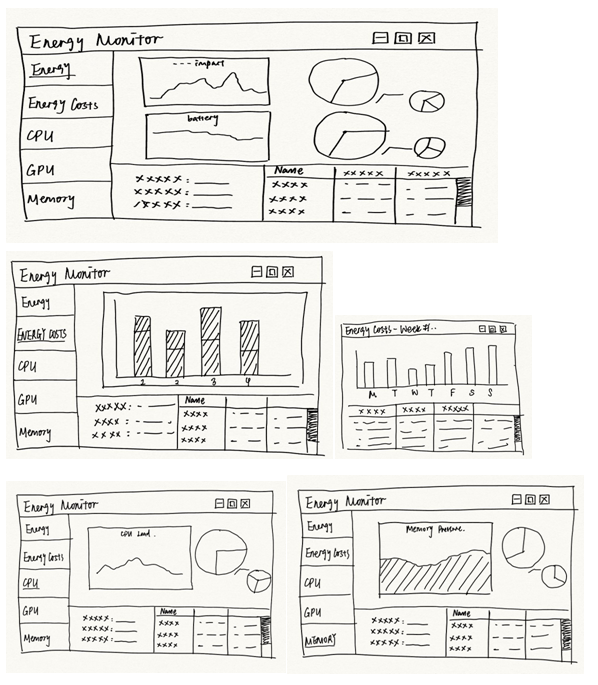 Energy Monitor
Energy
Energy Costs
CPU
GPU
Memory
--- impact
battery
xxxxx:
xxxxx:
xxxxx:
Name xxxxx xxxxx
xxxx
xxxx
xxxx
Energy Monitor
Energy
ENERGY COSTS
CPU
GPU
Memory
1 2 3 4
xxxxx:
xxxx:
xxxx:
Name
xxxx
xxxx
xxxx
Energy Costs - Week #1..
M T W T F S S
xxxx xxxx xxxxx
Energy Monitor
Energy
Energy Costs
CPU
GPU
Memory
CPU Load.
xxxxx:
xxxxx:
xxxxx:
Name
xxxx
xxxx
xxxx
Energy Monitor
Energy
Energy Costs
CPU
GPU
MEMORY
Memory Pressure.
xxxxx:
xxxxx:
xxxxx:
Name
xxxx
xxxx
xxxx